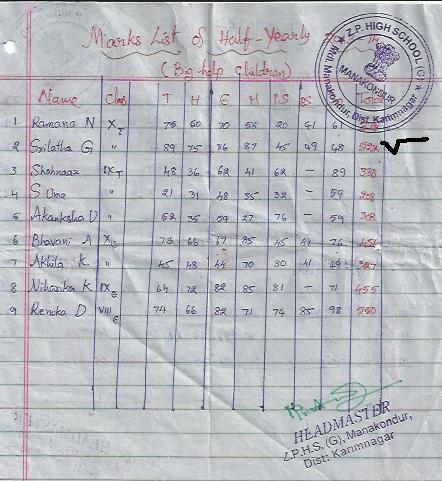 Marks List of Half-Yearly
(Big help Children)
Z.P. HIGH SCHOOL (G)
MANAKONDUR
Mdl. Manakondur, Dist. Karimnagar
Name Class T H E M P.S B.S Total
1 Ramana N X T 75 50 70 20 41 61
2 Srilatha G " 89 75 86 87 45 49 48 522
3 Shahnaaz IX T 48 36 62 41 62 - 89 338
4 S Uma " 21 31 48 35 32 - 59
5 Akanksha D " 52 35 59 27 76 - 59 308
6 Bhavani A X 73 66 67 85 45 76
7 Akhila K " 45 48 44 70 30 41
8 Niharika K IX E 64 72 82 85 81 - 71 455
9 Renuka D VIII E 74 66 82 71 74 85 98 550
HEADMASTER
Z.P.H.S. (G), Manakondur,
Dist: Karimnagar